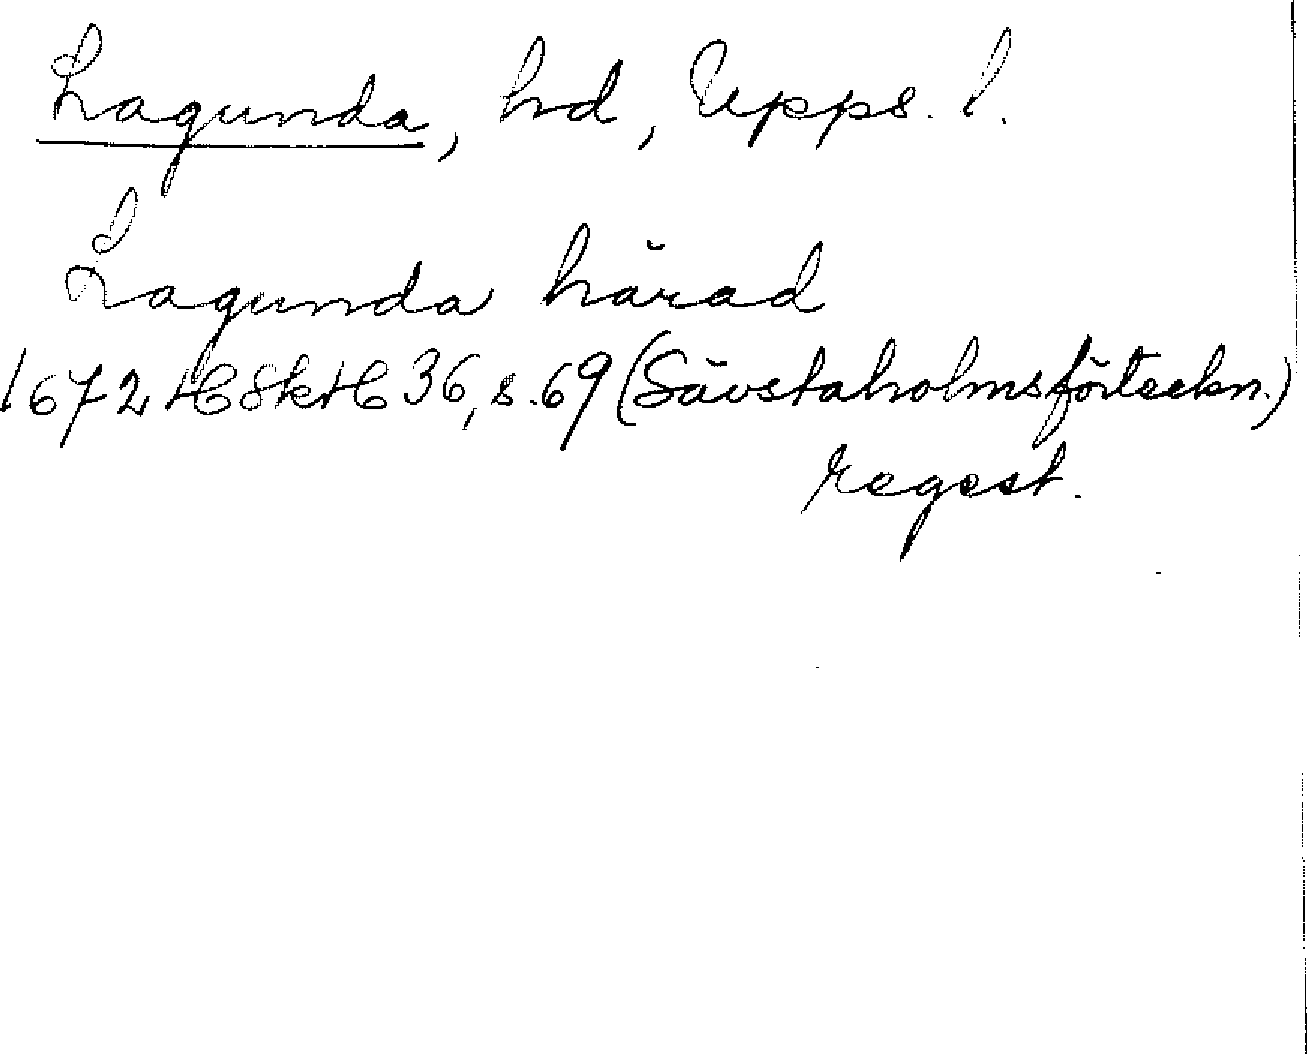 Lagunda, hd, Upps. l.
Lagunda härad
1672 HSkH 36, s. 69 (Sävstaholmsförteckn.)
regest.